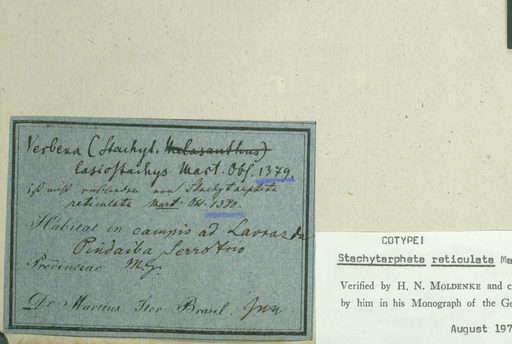 Verbena (Stachyt. Melasanthus)
lasiostachys Mart. Obs. 1379.
ist nicht verschieden von Stachytarpheta
reticulata Mart. Obs. 1320.
Habitat in campis ad Lavras da
Pindaiba Serro frio
Provinciae M.G.
Dr Martius Iter Brasil.
COTYPE!
Stachytarpheta reticulata Ma
Verified by H. N. MOLDENKE and c
by him in his Monograph of the Ge
August 197